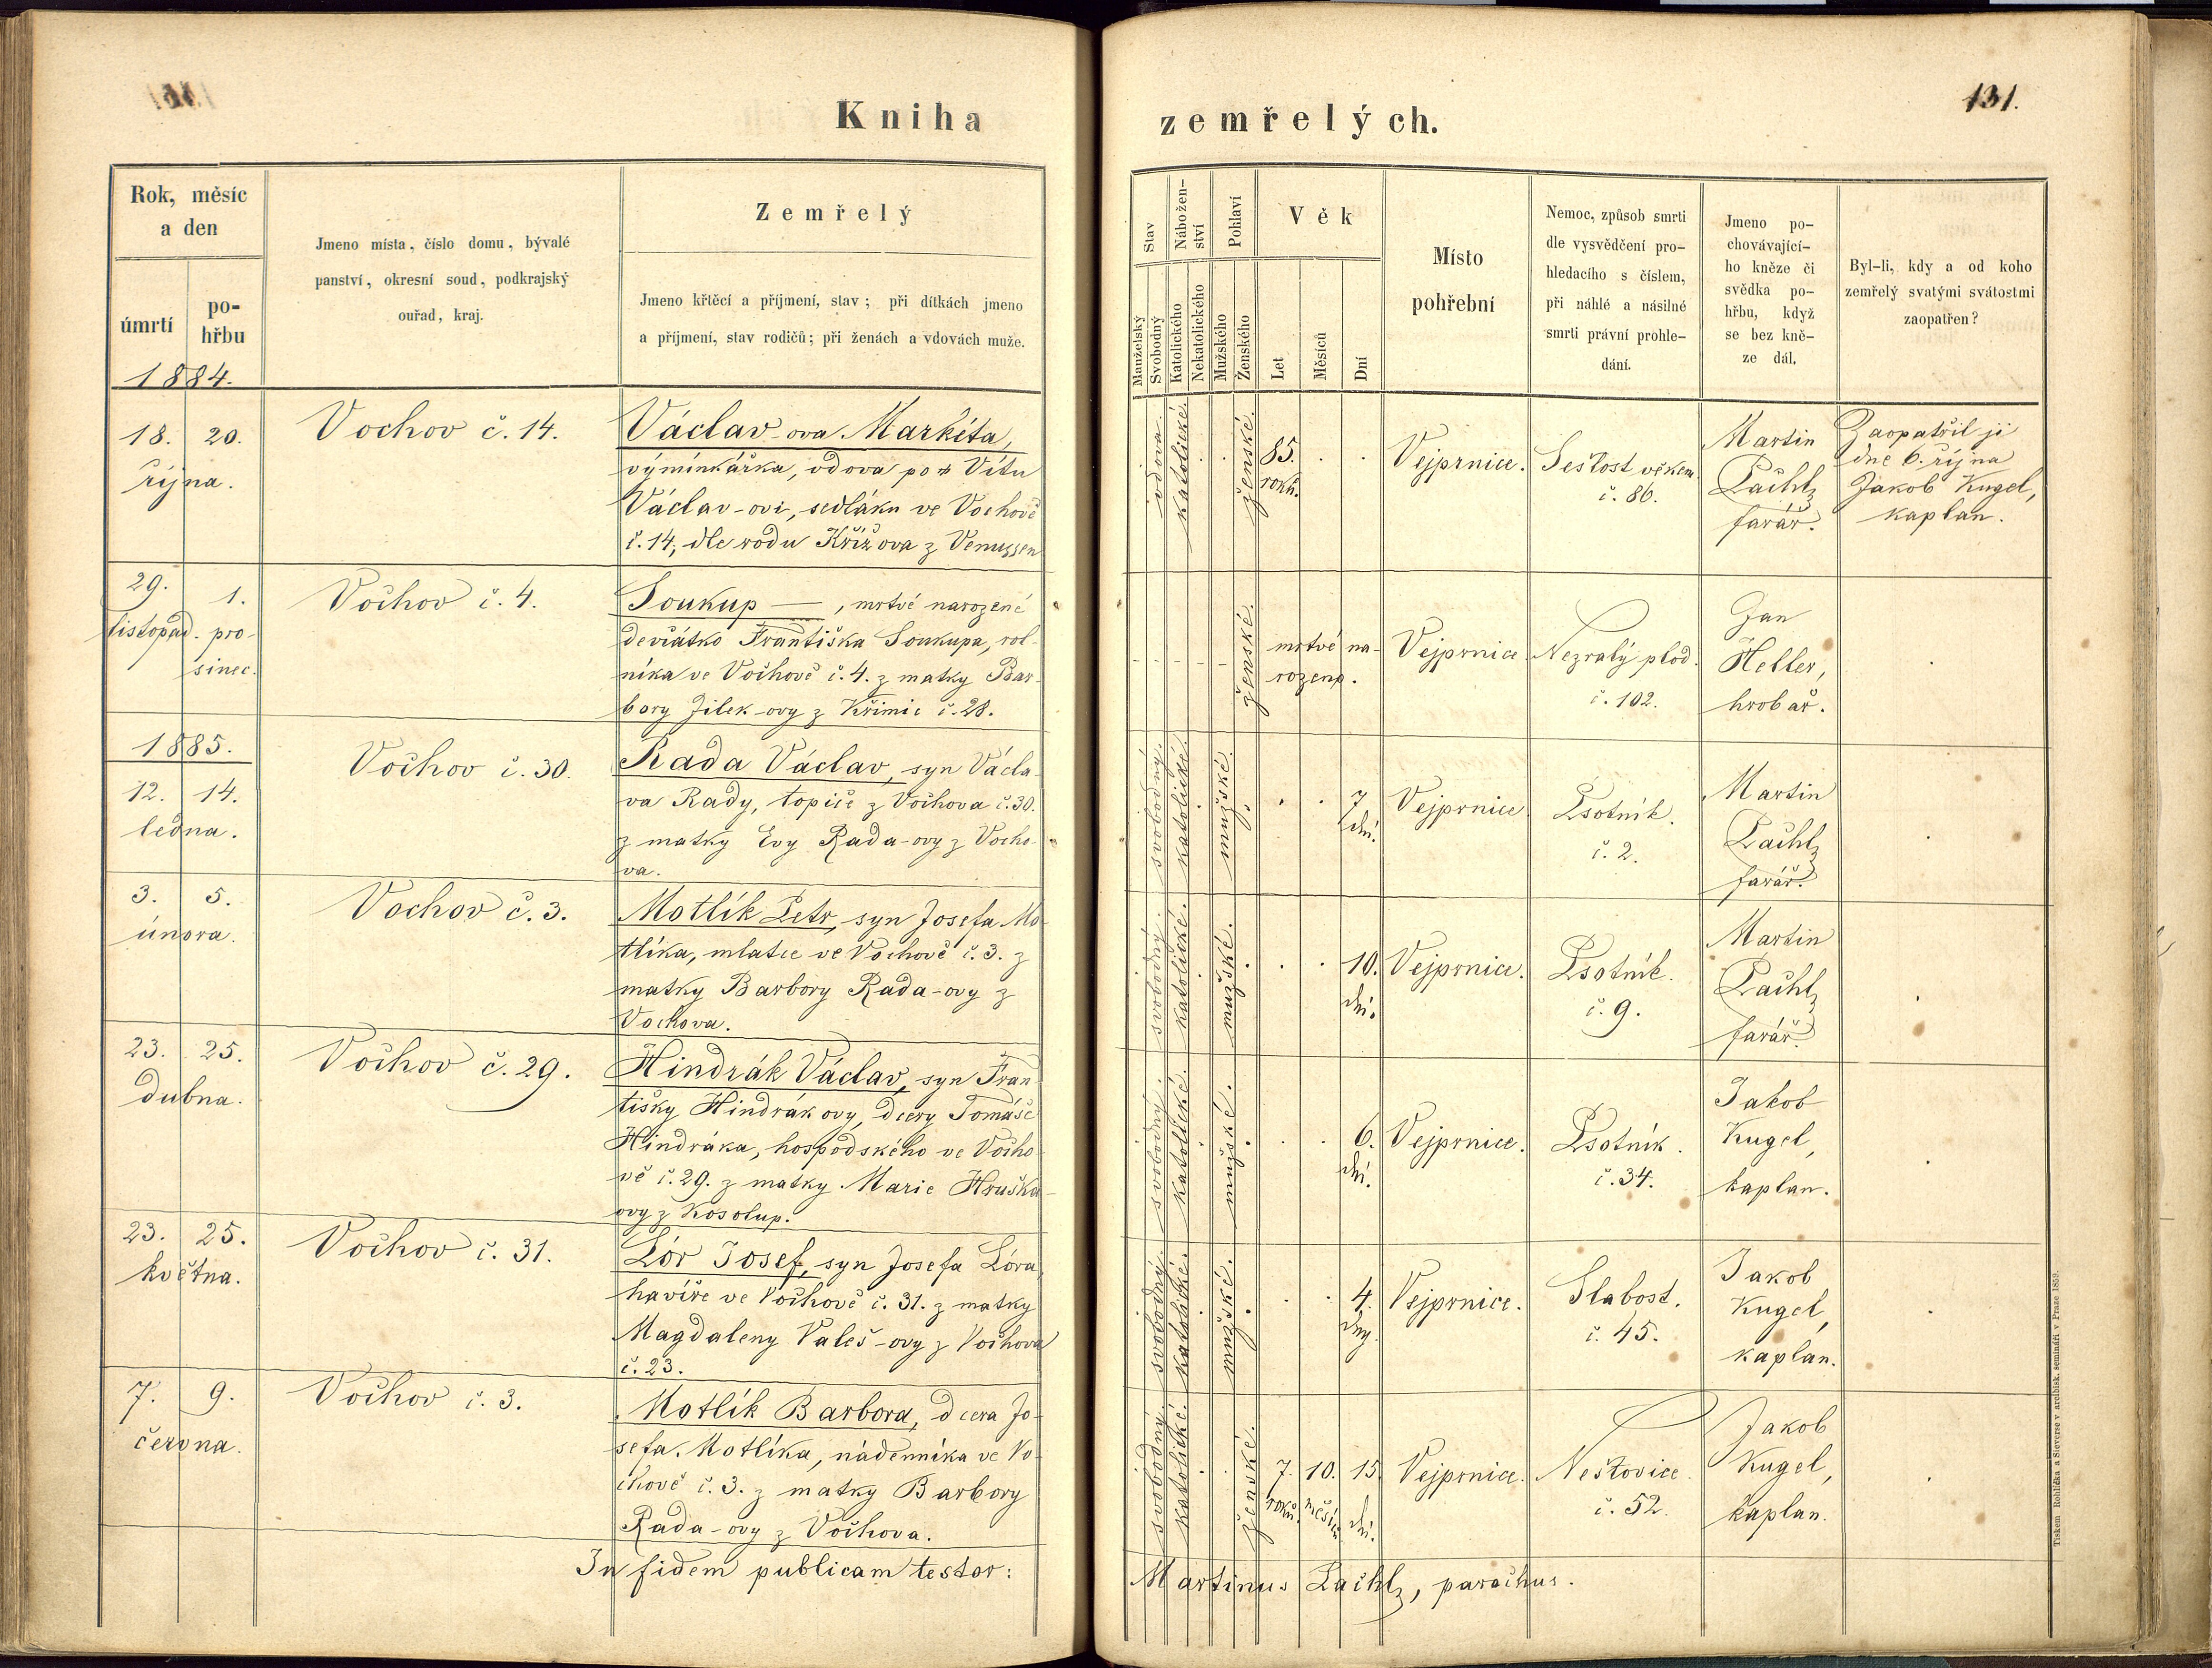 Kniha
zemřelých.
131.
Rok, měsíc
a den
úmrtí
po-
hřbu
1884.
Jmeno místa, číslo domu, bývalé
panství, okresní soud, podkrajský
ouřad, kraj.
Zemřelý
Jmeno křtěcí a příjmení, stav; při dítkách jmeno
a příjmení, stav rodičů; při ženách a vdovách muže.
Stav
Manželský
Svobodný
Nábožen-
ství
Katolického
Nekatolického
Pohlaví
Mužského
Ženského
Věk
Let
Měsíců
Dní
Místo
pohřební
Nemoc, způsob smrti
dle vysvědčení pro-
hledacího s číslem,
při náhlé a násilné
smrti právní prohle-
dání.
Jmeno po-
chovávající-
ho kněze či
svědka po-
hřbu, když
se bez kně-
ze dál.
Byl-li, kdy a od koho
zemřelý svatými svátostmi
zaopatřen?
18. 20.
října.
Vochov č. 14.
Václav-ova Markéta,
výminkářka, vdova po Vítu
Václav-ovi, sedláku ve Vochově
č. 14, dle rodu Křížova z
vdova.
katolické.
ženské.
85.
roků.
Vejprnice.
Sešlost věkem
č. 86.
Martin
farář.
Zaopatřil ji
dne 6. října
Jakob Kugel,
kaplan.
29. 1.
listopad. pro-
sinec.
Vochov č. 4.
Soukup —, mrtvě narozené
děvčátko Františka Soukupa, rol-
níka ve Vochově č. 4. z matky Bar-
bory Jílek-ovy z Křimic č. 28.
ženské.
mrtvě na-
rozené.
Vejprnice.
Nezralý plod.
č. 102.
Jan
Heller,
hrobař.
1885.
12. 14.
ledna.
Vochov č. 30.
Rada Václav, syn Václa-
va Rady, topiče z Vochova č. 30.
z matky Evy Rada-ovy z Vocho-
va.
svobodný.
katolické.
mužské.
7
dní.
Vejprnice
Psotník.
č. 2.
Martin
farář.
3. 5.
února.
Vochov č. 3.
Motlík Petr, syn Josefa Mo-
tlíka, mlatce ve Vochově č. 3. z
matky Barbory Rada-ovy z
Vochova.
svobodný.
katolické.
mužské.
10.
dní.
Vejprnice.
Psotník.
č. 9.
Martin
farář.
23. 25.
dubna.
Vochov č. 29.
Hindrák Václav, syn Fran-
tišky Hindrákovy, dcery Tomáše
Hindráka, hospodského ve Vocho-
vě č. 29. z matky Marie Hruška-
ovy z Kosolup.
svobodný.
katolické.
mužské.
6.
dní.
Vejprnice.
Psotník.
č. 34.
Jakob
Kugel,
kaplan.
23. 25.
května.
Vochov č. 31.
Lór Josef, syn Josefa Lóra,
havíře ve Vochově č. 31. z matky
Magdaleny Valeš-ovy z Vochova
č. 23.
svobodný.
katolické.
mužské.
4.
dny.
Vejprnice.
Slabost.
č. 45.
Jakob
Kugel,
kaplan.
7. 9.
června.
Vochov č. 3.
Motlík Barbora, dcera Jo-
sefa Motlíka, nádenníka ve Vo-
chově č. 3. z matky Barbory
Rada-ovy z Vochova.
svobodný.
katolické.
ženské.
7. 10. 15
roků. měsíců dní.
Vejprnice.
Neštovice.
č. 52.
Jakob
Kugel,
kaplan.
In fidem publicam testor:
Martinus, parochus.
Tiskem Rohlíčka a Sieverse v arcibisk. semináři v Praze 1859.